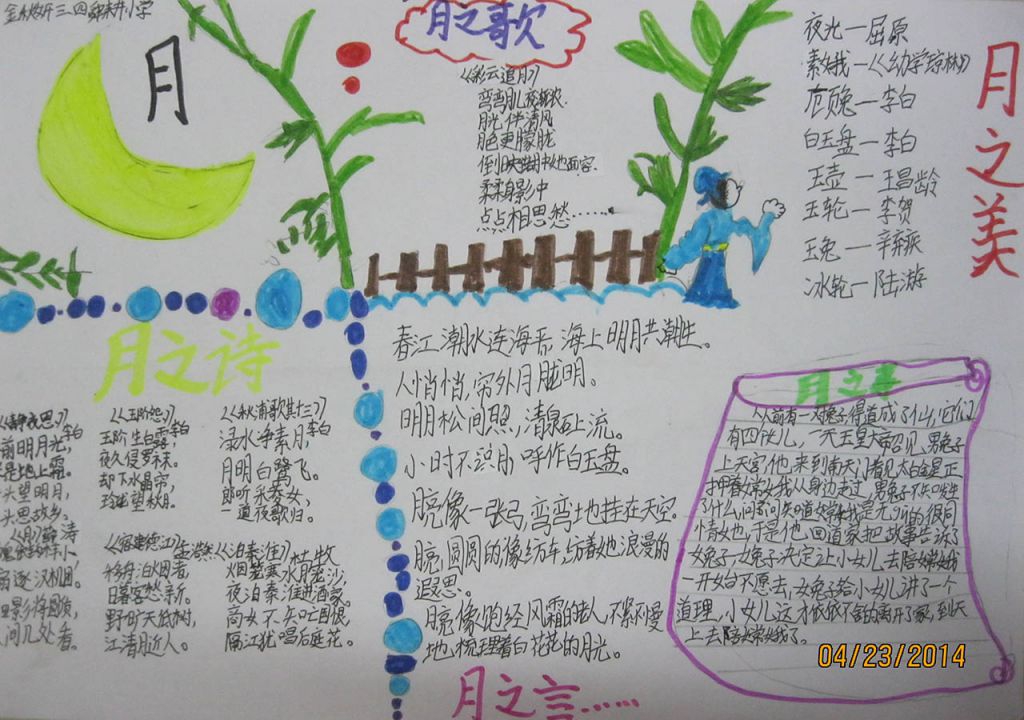 月
月之歌
《彩云追月》
弯弯月儿夜渐浓
月光伴清风
月色更朦胧
倒映湖中她面容
柔柔身影中
点点相思愁……
夜光一屈原
素娥一《幼学琼林》
顾兔一李白
白玉盘一李白
玉壶一王昌龄
玉轮一李贺
玉兔一辛弃疾
冰轮一陆游
月之美
月之诗
《静夜思》
李白
前明月光,
是地上霜。
头望明月,
头思故乡。
《玉阶怨》
李白
玉阶生白露,
夜久侵罗袜。
却下水晶帘,
玲珑望秋月。
《秋浦歌其十三》
李白
渌水净素月,
月明白鹭飞。
郎听采菱女,
一道夜歌归。
《月》薛涛
魄依钩样小
扇逐汉机团。
细影将圆质,
人间几处看。
《宿建德江》
孟浩然
移舟泊烟渚,
日暮客愁新。
野旷天低树,
江清月近人。
《泊秦淮》杜牧
烟笼寒水月笼沙,
夜泊秦淮近酒家。
商女不知亡国恨,
隔江犹唱后庭花。
春江潮水连海平,海上明月共潮生。
人悄悄,帘外月胧明。
明月松间照,清泉石上流。
小时不识月,呼作白玉盘。
月亮像一张弓,弯弯地挂在天空。
月亮,圆圆的像纺车,纺着她浪漫的
遐思。
月亮像饱经风霜的老人,不紧不慢
地梳理着白花花的月光。
月之言……
从前有一对兔子得道成了仙,它们
有四个女儿,一天玉皇大帝召见,男兔子
上天宫,他来到南天门看见太白金星正
押着嫦娥从身边走过,男兔子不知发生
了什么,问
开始不愿去,女兔子给小女儿讲了一个
道理,小女儿这才依依不舍的离开了家,到天
上去陪嫦娥了。
04/23/2014